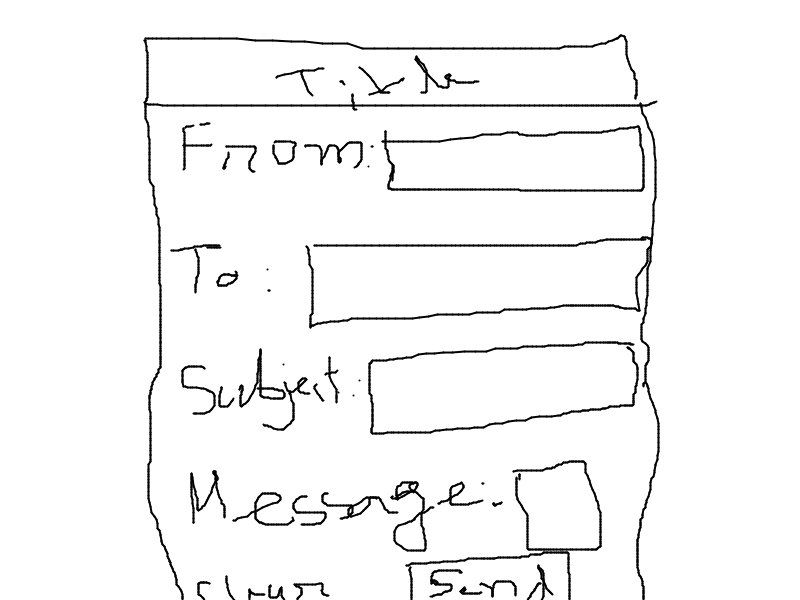 Title
From:
To:
Subject:
Message:
Send